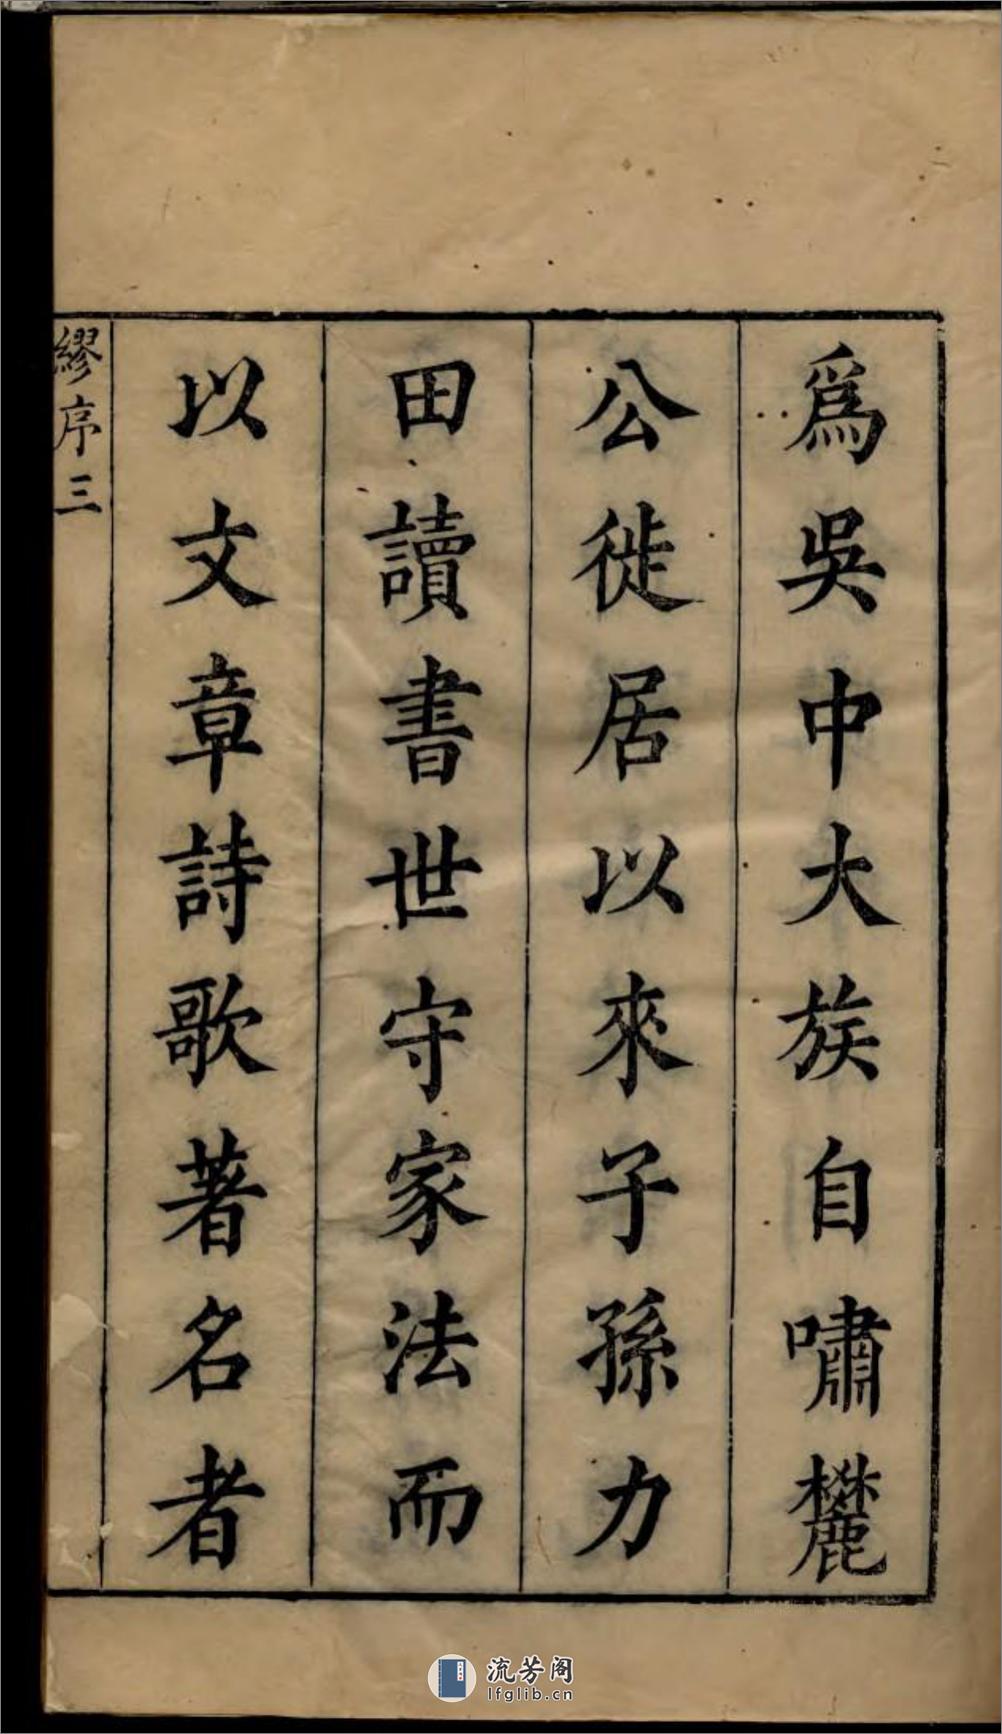 爲吳中大族自嘯麓
公徙居以來子孫力
田讀書世守家法而
以文章詩歌著名者
繆序三
流芳阁
lfglib.cn